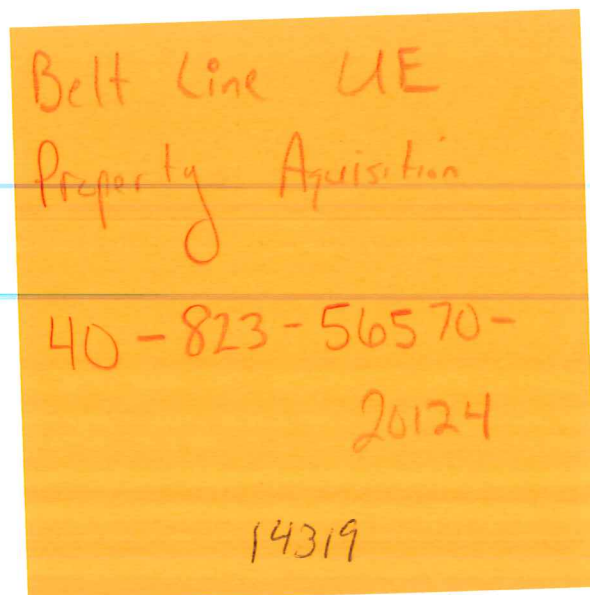 Belt Line UE
Property Aquisition
40-823-56570-
20124
14319